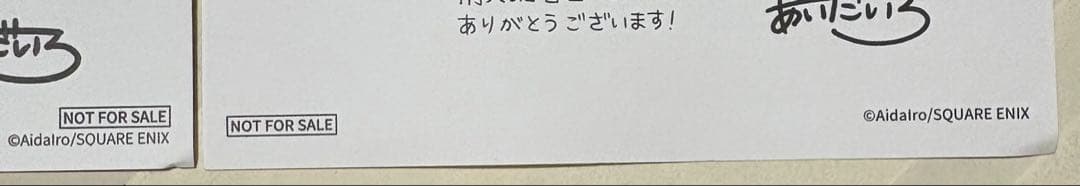 だいろ
NOT FOR SALE
©AidaIro/SQUARE ENIX
ありがとうございます!
あいだいろ
NOT FOR SALE
©AidaIro/SQUARE ENIX